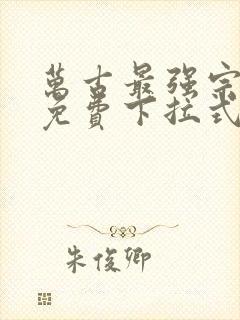 萬古最强宗
免費下拉式
朱俊卿